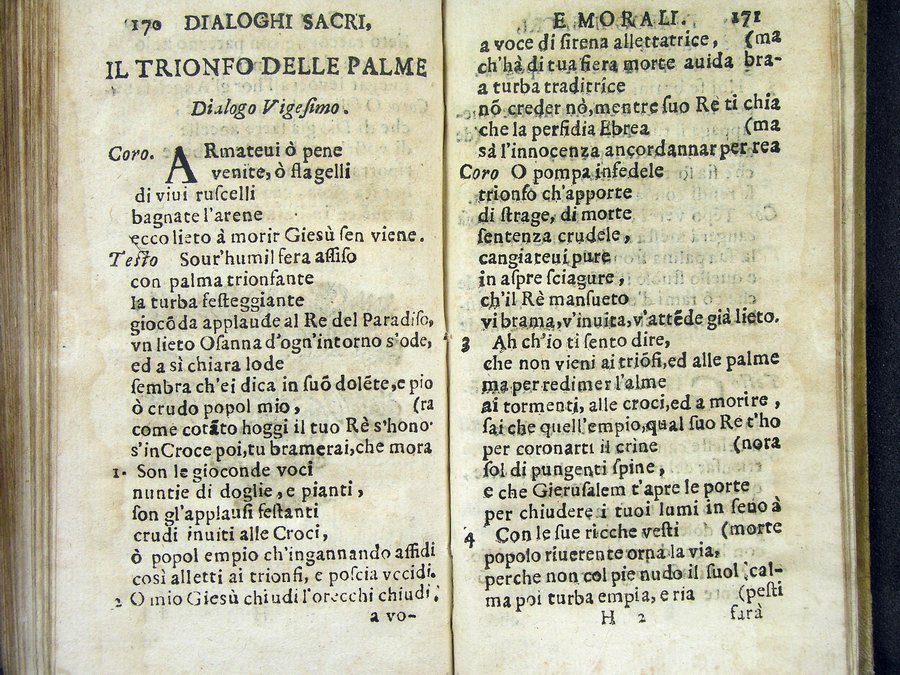 170 DIALOGHI SACRI,
IL TRIONFO DELLE PALME
Dialogo Vigesimo.
Coro. ARmateui ò pene
venite, ò flagelli
di viui ruscelli
bagnate l'arene
ecco lieto à morir Giesù sen viene.
Testo Sour'humil fera assiso
con palma trionfante
la turba festeggiante
giocōda applaude al Re del Paradiso,
vn lieto Osanna d'ogn'intorno s'ode,
ed a sì chiara lode
sembra ch'ei dica in suō dolēte, e pio
ò crudo popol mio, (ra
come cotāto hoggi il tuo Rè s'hono-
s'inCroce poi, tu bramerai, che mora
1. Son le gioconde voci
nuntie di doglie, e pianti,
son gl'applausi festanti
crudi inuiti alle Croci,
ò popol empio ch'ingannando affidi
così alletti ai trionfi, e poscia vccidi.
2 O mio Giesù chiudi l'orecchi chiudi,
a vo-
E MORALI. 171
a voce di sirena allettatrice, (ma
ch'hà di tua fiera morte auida bra-
a turba traditrice
nō creder nò, mentre suo Re ti chia
che la perfidia Ebrea (ma
sà l'innocenza ancor dannar per rea
Coro O pompa infedele
trionfo ch'apporte
di strage, di morte
sentenza crudele,
cangiateui pure
in aspre sciagure,
ch'il Rè mansueto
vi brama, v'inuita, v'attēde già lieto.
3 Ah ch'io ti sento dire,
che non vieni ai triōfi, ed alle palme
ma per redimer l'alme
ai tormenti, alle croci, ed a morire,
sai che quell'empio, qual suo Re t'ho
per coronarti il crine (nora
sol di pungenti spine,
e che Gierusalem t'apre le porte
per chiudere i tuoi lumi in seno à
4 Con le sue ricche vesti (morte
popolo riuerente orna la via,
perche non col pie nudo il suol cal-
ma poi turba empia, e ria (pesti
H 2 farà